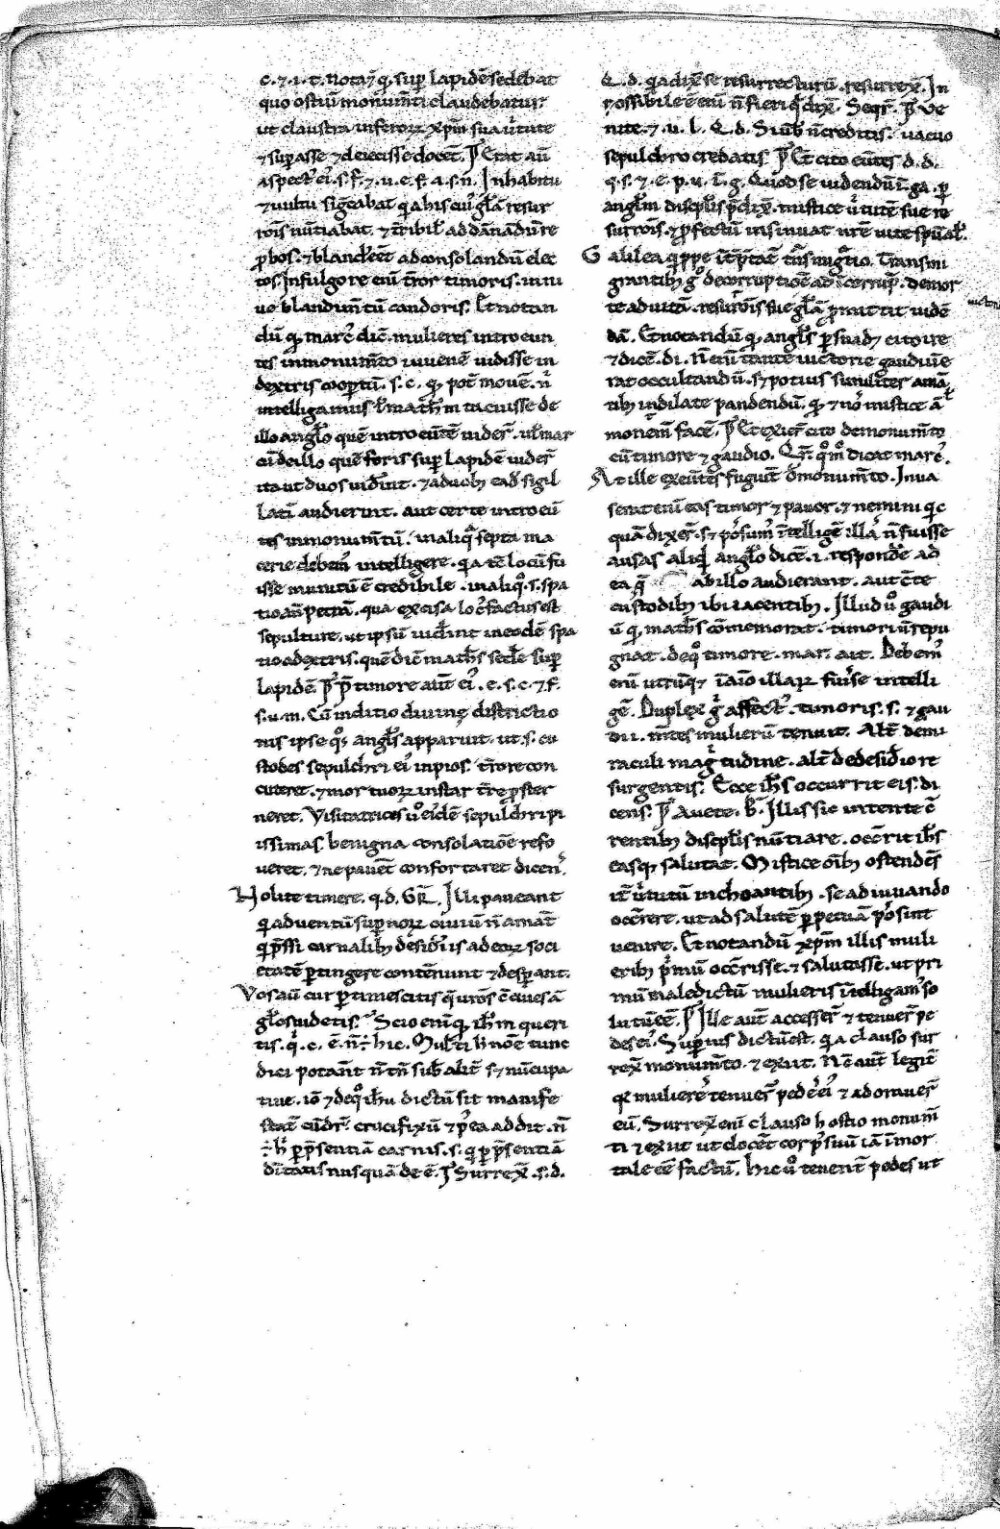 c. ⁊ .i. t. Notat᷑ q. sup lapidē sedebat
quo ostiū monum̄ti claudebatur.
ut claustra inferoꝝ xp̄m sua ūtute
⁊ supasse ⁊ deiecisse docet̄. Erat aū
aspect᷒ ei᷒ .s. f. ⁊ .u. e. s. a. s. n. In habitu
⁊ uultu sig̃cabat q̇a his cui᷒ gl̄a resur
rōis nūtiabat. ⁊ t̄ribil᷒ ad dānandū re
p̱bos. ⁊ blandi᷒ eēt ad consolandū elec
tos. In fulgore eni̅ t̄ror timoris. in ni
ue blandim̄tū candoris. Et notan
dū qꝫ marc᷒ dic̄. mulieres introeun
tes in monum̄to iuuenē uidisse in
dextris coop̱tū. s. c. qꝫ pot̄ mouē. n̄
intelligamus ꝉ math̄m tacuisse de
illo angl̄o quē introeūtē uider̄. ꝉ mar
cū de illo quē foris sup lapidē uider̄
ita ut duos uider̄int. ⁊ a duobꝫ ead̄ sigil
latī audierint. aut certe introeū
tes in monum̄tū. in aliq̇ septa ma
cerie debem᷒ intelligere. q̇a tc̄ locū fu
isse munitū ē credibile. in aliqº .s. spa
tio an̄ petrā. qua excisa loc᷒ fact᷒ est
sepulture. ut ipsū uider̄int in eodē spa
tio a dextris. quē dic̄ math̄s sedē sup
lapidē. P̄ timore aūt ei᷒ .e. s. c. ⁊ f.
s. u. m. Cū inditio diuine districtio
nis ipse qºꝫ angl̄s apparuit. ut .s. cu
stodes sepulchri ei᷒ inpios. t̄rore con
cuteret. ⁊ mortuoꝝ instar t̄re p̱ster
neret. Visitatrices uº ei᷒dē sepulchri pi
issimas. benigna consolatiōe refo
ueret. ⁊ ne pauēt confortaret dicen᷒
Nolite timere. q. d. GR̄. Illi paueant
q̇ aduentū sup̱noꝝ ciuiū n̄ amāt
q̇ p̱ssi carnalibꝫ desid̄iis ad eoꝝ soci
etatē p̱tingere contēnunt ⁊ desp̱ant.
Vos aū cur p̱timescitis q̇ ur̄os c̄ciues ā
gl̄os uidetis. Scio enim q̇ ih̄m queri
tis. q̇. c. ē. n̄ ÷ hic. Multi h̄ noē tunc
dici potant̄ n̄ tn̄ sub̄alit̄ sꝫ nūcupa
tiue. iō ⁊ de qº ih̄u dictū sit manife
statē cū dr̄. crucifixū ⁊ p̱ea addit. n̄
÷ h̄ p̱ p̄sentiā carnis. s. q̇ p̱ p̄sentiā
diuitatis nusquā deē. Surrex̄ .s. d.
Q. d. q̇a dix̄ se resurrecturū. resurrex̄. In
possibile ē eni̅ n̄ fieri qḋ dix̄. Seqr̄. Ve
nite. ⁊ .u. l. Q. d. Si ūb̄ n̄ creditis. uacuo
sepulchro credatis. Et cito eūtes .d. d.
q. s. ⁊ .e. p. u. ī. g. Quod se uidendū ī ga. p̱
angl̄m discipl̄is p̄dix̄. mistice ūtutē sue re
surrōis. ⁊ p̱fectū insinuat nr̄e uite sp̄ual̄.
Galilea q̇ppe īt̄p̱tat̄ trās mig̃tio. Trans mi
grantibꝫ gº de corruptiōe ad īcorrup̱. de mor
te ad uitā. resurōis sue gl̄ā p̱mittit uidē
dā. Et notandū qꝫ angl̄s p̱suadꝫ cito ire
⁊ dicē .di. n̄ eni̅ tante uictorie gaudiū e
rat occultandū. sꝫ potius similit̄ amā
tibꝫ indilate pandendū. qꝫ ⁊ nos mistice ā
monem᷒ facē. Et exier̄ cito de monum̄to
cū timore ⁊ gaudio. Qr̄. qºmº dicat marc᷒.
At ille exeūtes fugiūt de monum̄to. Inua
serat eni̅ eas timor ⁊ pauor. ⁊ nemini q̇c
quā dixer̄. sꝫ poss̄um᷒ īntelligē illas n̄ fuisse
ausas aliqḋ angl̄o dicē .i. respondē ad
ea q̄ ab illo audierant. aut c̄te
custodibꝫ ibi iacentibꝫ. Illud uº gaudi
ū qꝫ math̄s cōmemorat. timori n̄ repu
gnat. de qº timore. mar. ait. Debem᷒
eni̅ utrūqꝫ ī aīo illaꝝ fuisse intelli
gē. Duplex ḡ affect᷒ timoris .s. ⁊ gau
dii. mētes mulierū tenuit. Alt̄ de mi
raculi magnitudine. alt̄ de desid̄io re
surgentis. Ecce ih̄s occurrit eis. di
cens. Auete. b̄. Illis sic intente c̄
rentibꝫ discipl̄is nūtiare. occr̄it ih̄s
easqꝫ salutat. Mistice oībꝫ ostendēs
it̄ ūtutū inchoantibꝫ. se adiuuando
occr̄ere. ut ad salutē p̱petuā possint
uenire. Et notandū xp̄m illis muli
eribꝫ p̄mū occr̄isse. ⁊ salutasse. ut pri
mū maledictū mulieris ītelligam᷒ so
lutū eē. Ille aūt accesser̄ ⁊ tenuer̄ pe
des ei᷒. Sup̱ius dictū est. q̇a clauso sur
rex̄ monum̄to. ⁊ exiit. Nc̄ aūt legit̄
qꝫ muliere᷒ tenuer̄ pedes ei᷒ ⁊ adorauer̄
eū. Surrex̄ eni̅ clauso hostio monum̄
ti ⁊ exiit ut docēt corp᷒ suū iā īmor
tale eē factū. Hic uº tenent̄ pedes ut